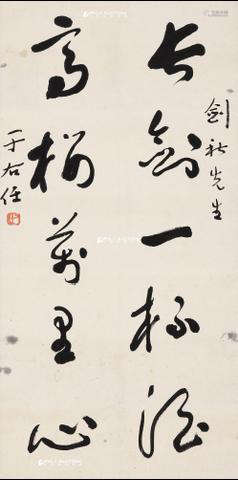 剑秋先生
长剑一杯酒
高楼万里心
于右任